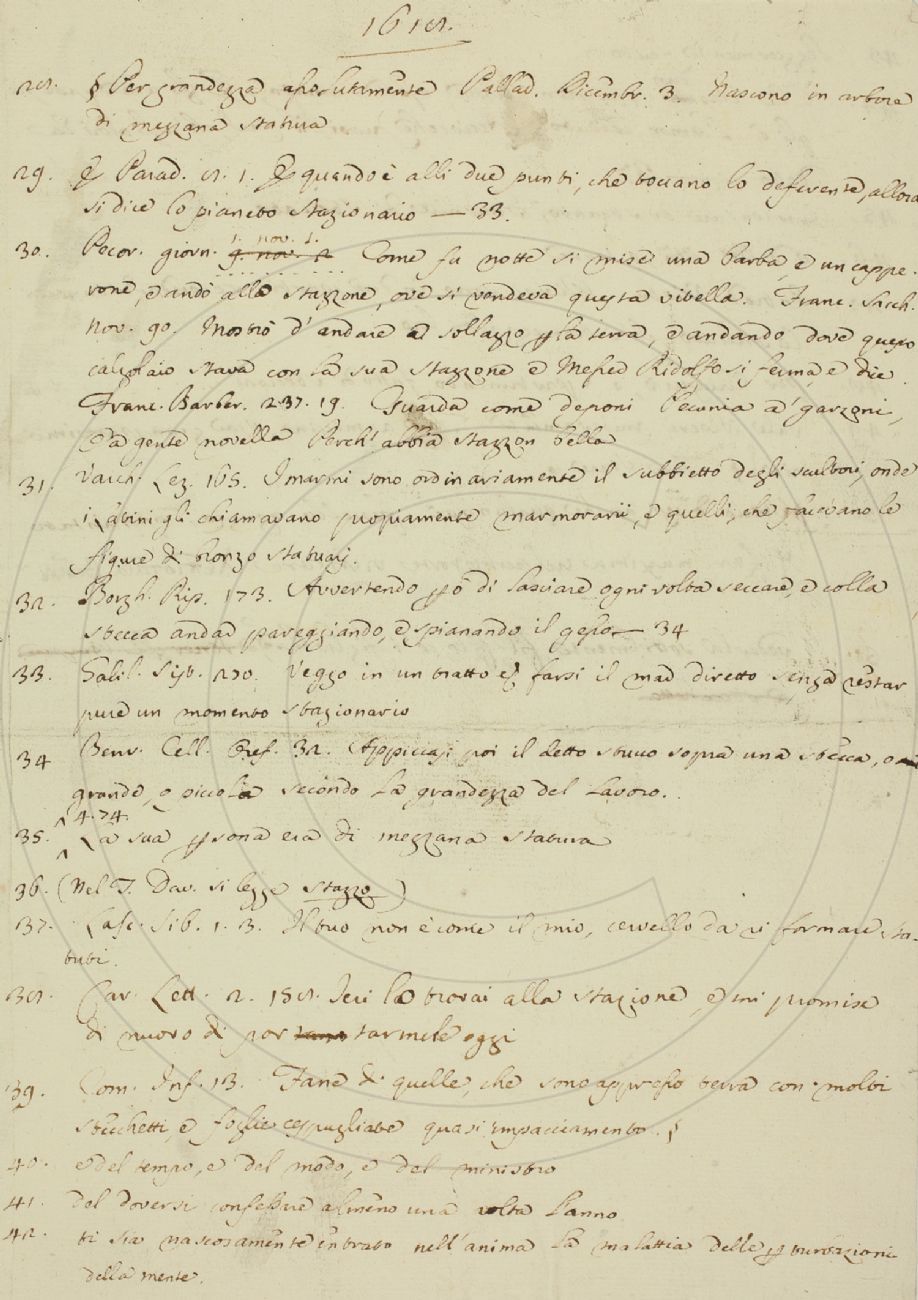 1618.
28. § Per grandezza assolutamente Pallad. Dicembr. 3. Nascono in arbore
di mezzana statura
29. E Parad. 8. 1. E quando è alli due punti, che toccano lo deferente, allora
si dice lo pianeto stazionario — 33.
1. nov. 1.
30. Pecor. giorn. g. nov. 2 Come fu notte si mise una barba e un cappe-
rone, e andò alla stazzone, ove si vendeva questa vitella. Franc. Sacch.
nov. 90. Mostrò d'andare a sollazzo p la terra, e andando dove questo
calzolaio stava con la sua stazzone e Messer Ridolfo si ferma, e dice
Franc. Barber. 237. 19. Guarda come deponi Pecunia a' garzoni,
Da gente novella Perch' abbia stazzon bella
31. Varch. Lez. 165. I marmi sono ordinariamente il subbietto degli scultori, onde
i Latini gli chiamavano propiamente marmorarii, e quelli, che facevano le
figure di bronzo statuarj.
32. Borgh. Rip. 173. Avvertendo pò di lasciare ogni volta seccare, e colla
stecca andar pareggiando, e spianando il gesso — 34
33. Galil. Sist. 270. Veggo in un tratto farsi il mar diretto senza restar
pure un momento stazionario
34 Benv. Cell. Oref. 32. Appiccasi poi il detto stucco sopra una stecca, o
grande, o piccola secondo la grandezza del Lavoro.
4. 74.
35. La sua psona era di mezzana statura
36. (Nel T. Dav. si legge stazzo)
37. Lasc. Sib. 1. 3. Il tuo non è come il mio, cervello da ri formare sta-
tuti.
38. Car. Lett. 2. 158. Ieri la trovai alla stazione, e mi promise
di nuovo di por tarmele oggi
39. Com. Inf. 13. Fane di quelle, che sono appresso terra con molti
stecchetti, e foglie cespugliate quasi impacciamento. §
40. e del tempo, e del modo, e del ministro
41. del doversi confessare almeno una volta l'anno
42. ti sia nascosamente entrato nell'anima la malattia delle pturbazioni
della mente.